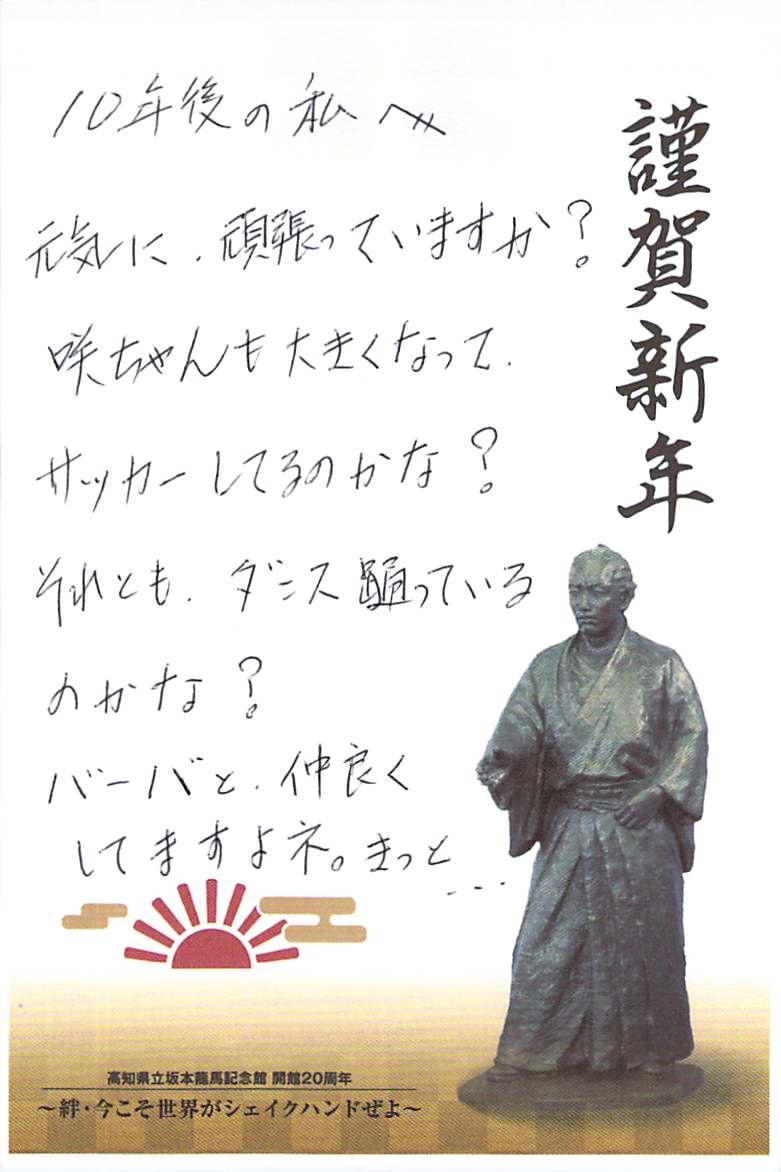 10年後の私へ
元気に、頑張っていますか？
咲ちゃんも大きくなって、
サッカーしてるのかな？
それとも、ダンス踊っている
のかな？
バーバと、仲良く
してますよネ。きっと…
謹賀新年
高知県立坂本龍馬記念館 開館20周年
～絆・今こそ世界がシェイクハンドぜよ～